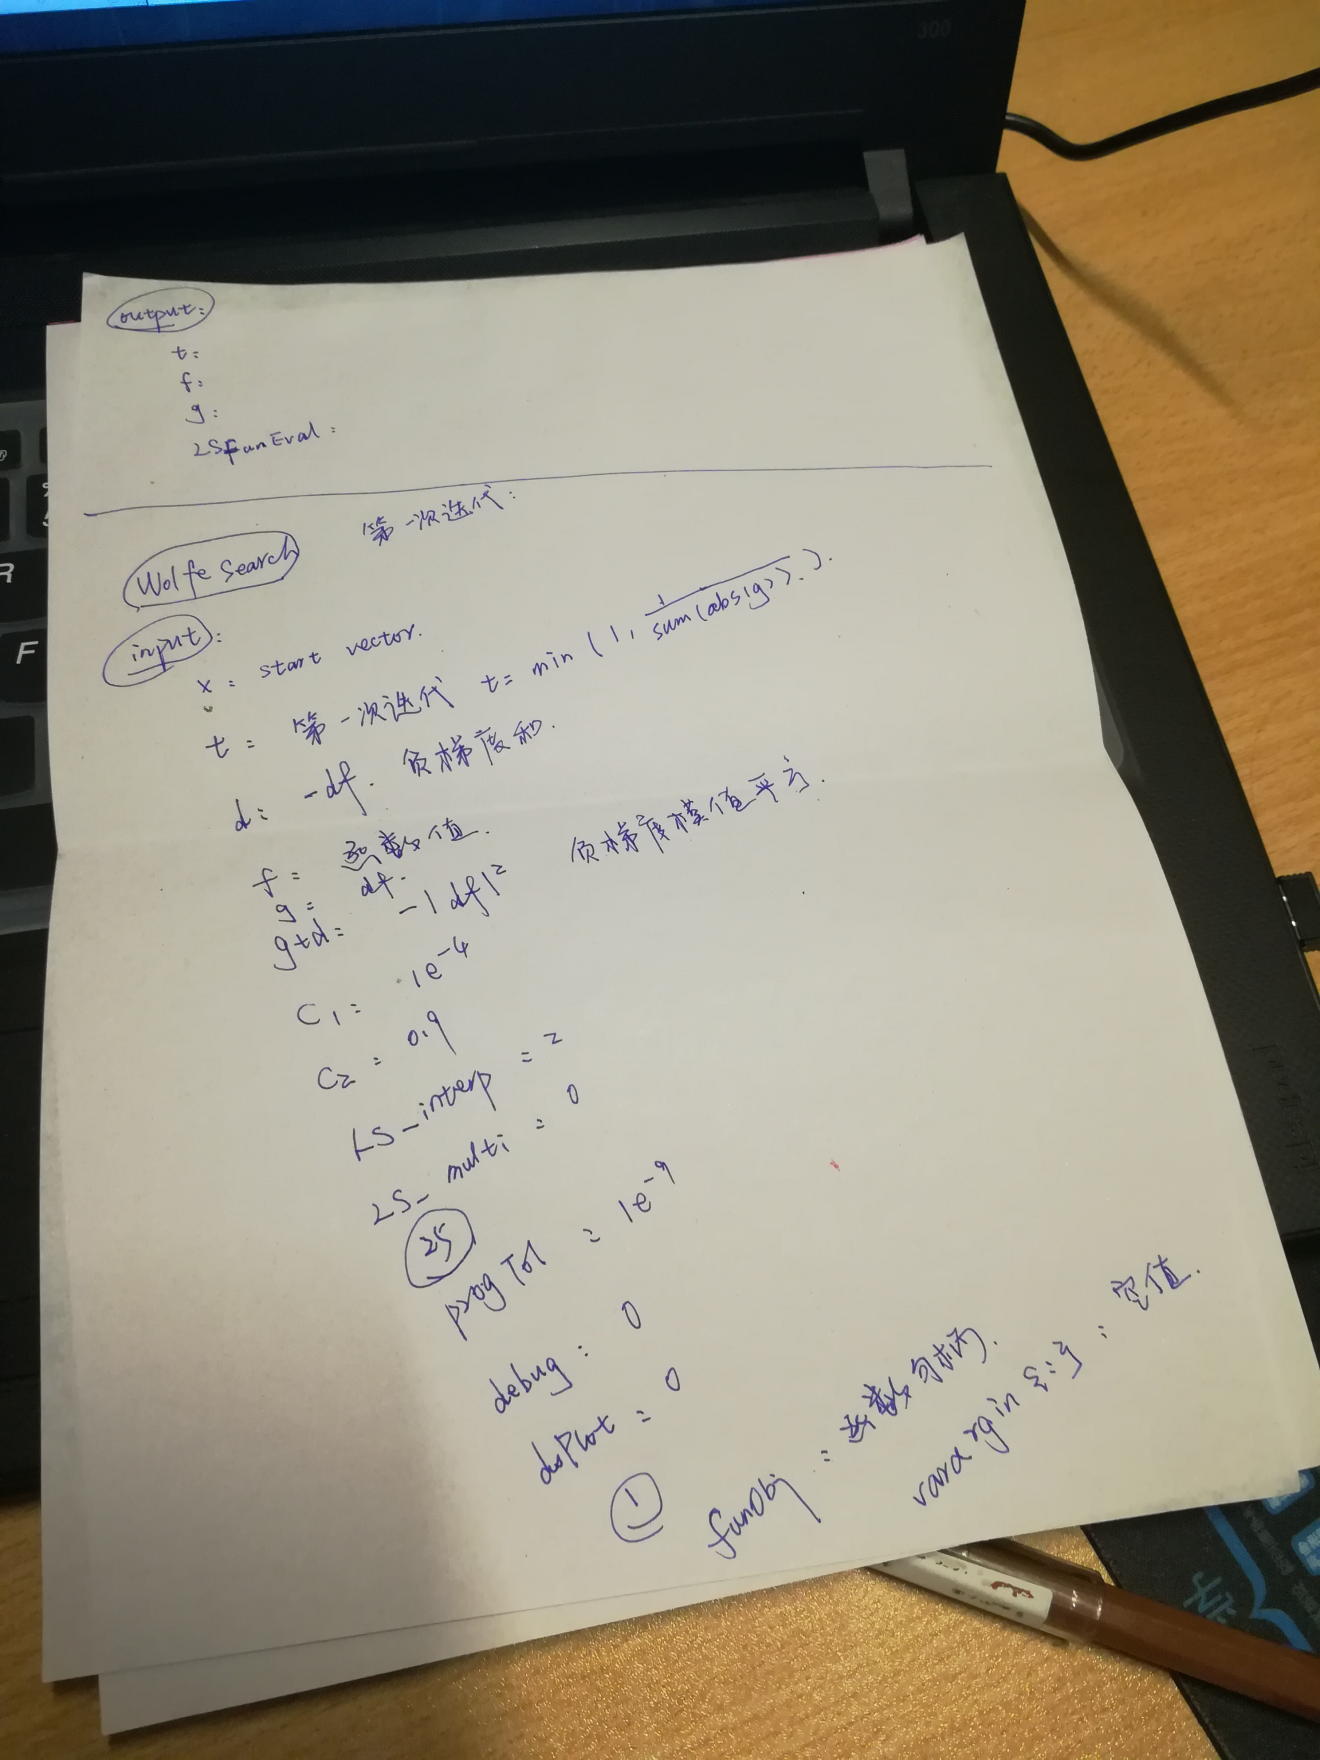 300
output:
t:
f:
g:
LSfunEval:
Wolfe Search 第一次迭代:
input:
x: start vector.
t: 第一次迭代 t= min(1, 1/sum(abs(g))).
d: -df. 负梯度和.
f: 函数值.
g: df.
gtd: -|df|² 负梯度模值平方.
C1: 1e^-4
C2: 0.9
LS_interp = 2
LS_multi = 0
25
progTol = 1e^-9
debug: 0
doPlot = 0
1
funObj: 函数句柄.
varargin{:}: 空值.
R
F